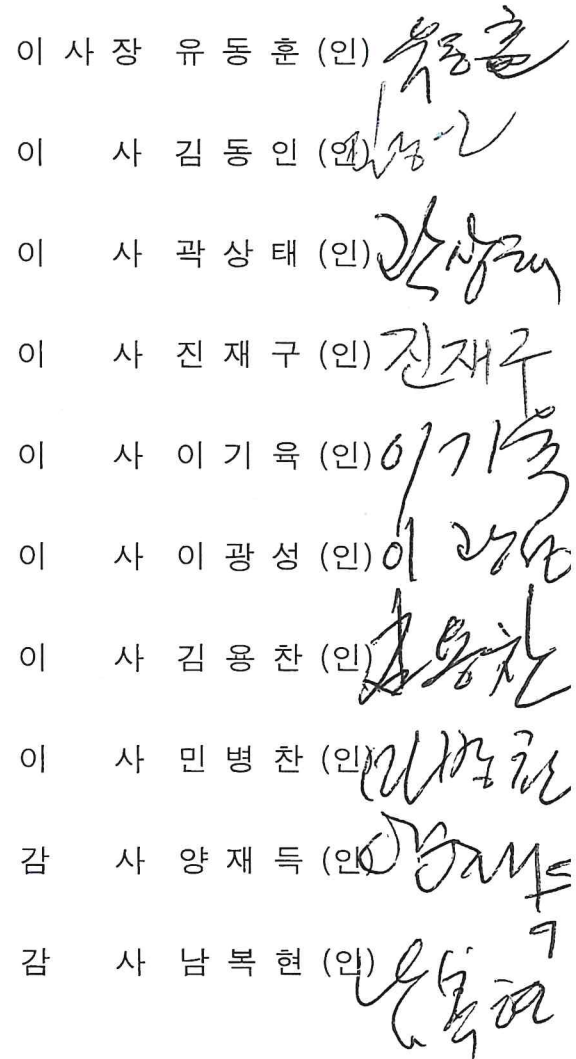 이 사 장 유 동 훈 (인) 유동훈
이 사 김 동 인 (인)
이 사 곽 상 태 (인) 곽상태
이 사 진 재 구 (인) 진재구
이 사 이 기 육 (인) 이기육
이 사 이 광 성 (인) 이광성
이 사 김 용 찬 (인) 김용찬
이 사 민 병 찬 (인) 민병찬
감 사 양 재 득 (인) 양재득
감 사 남 복 현 (인) 남복현